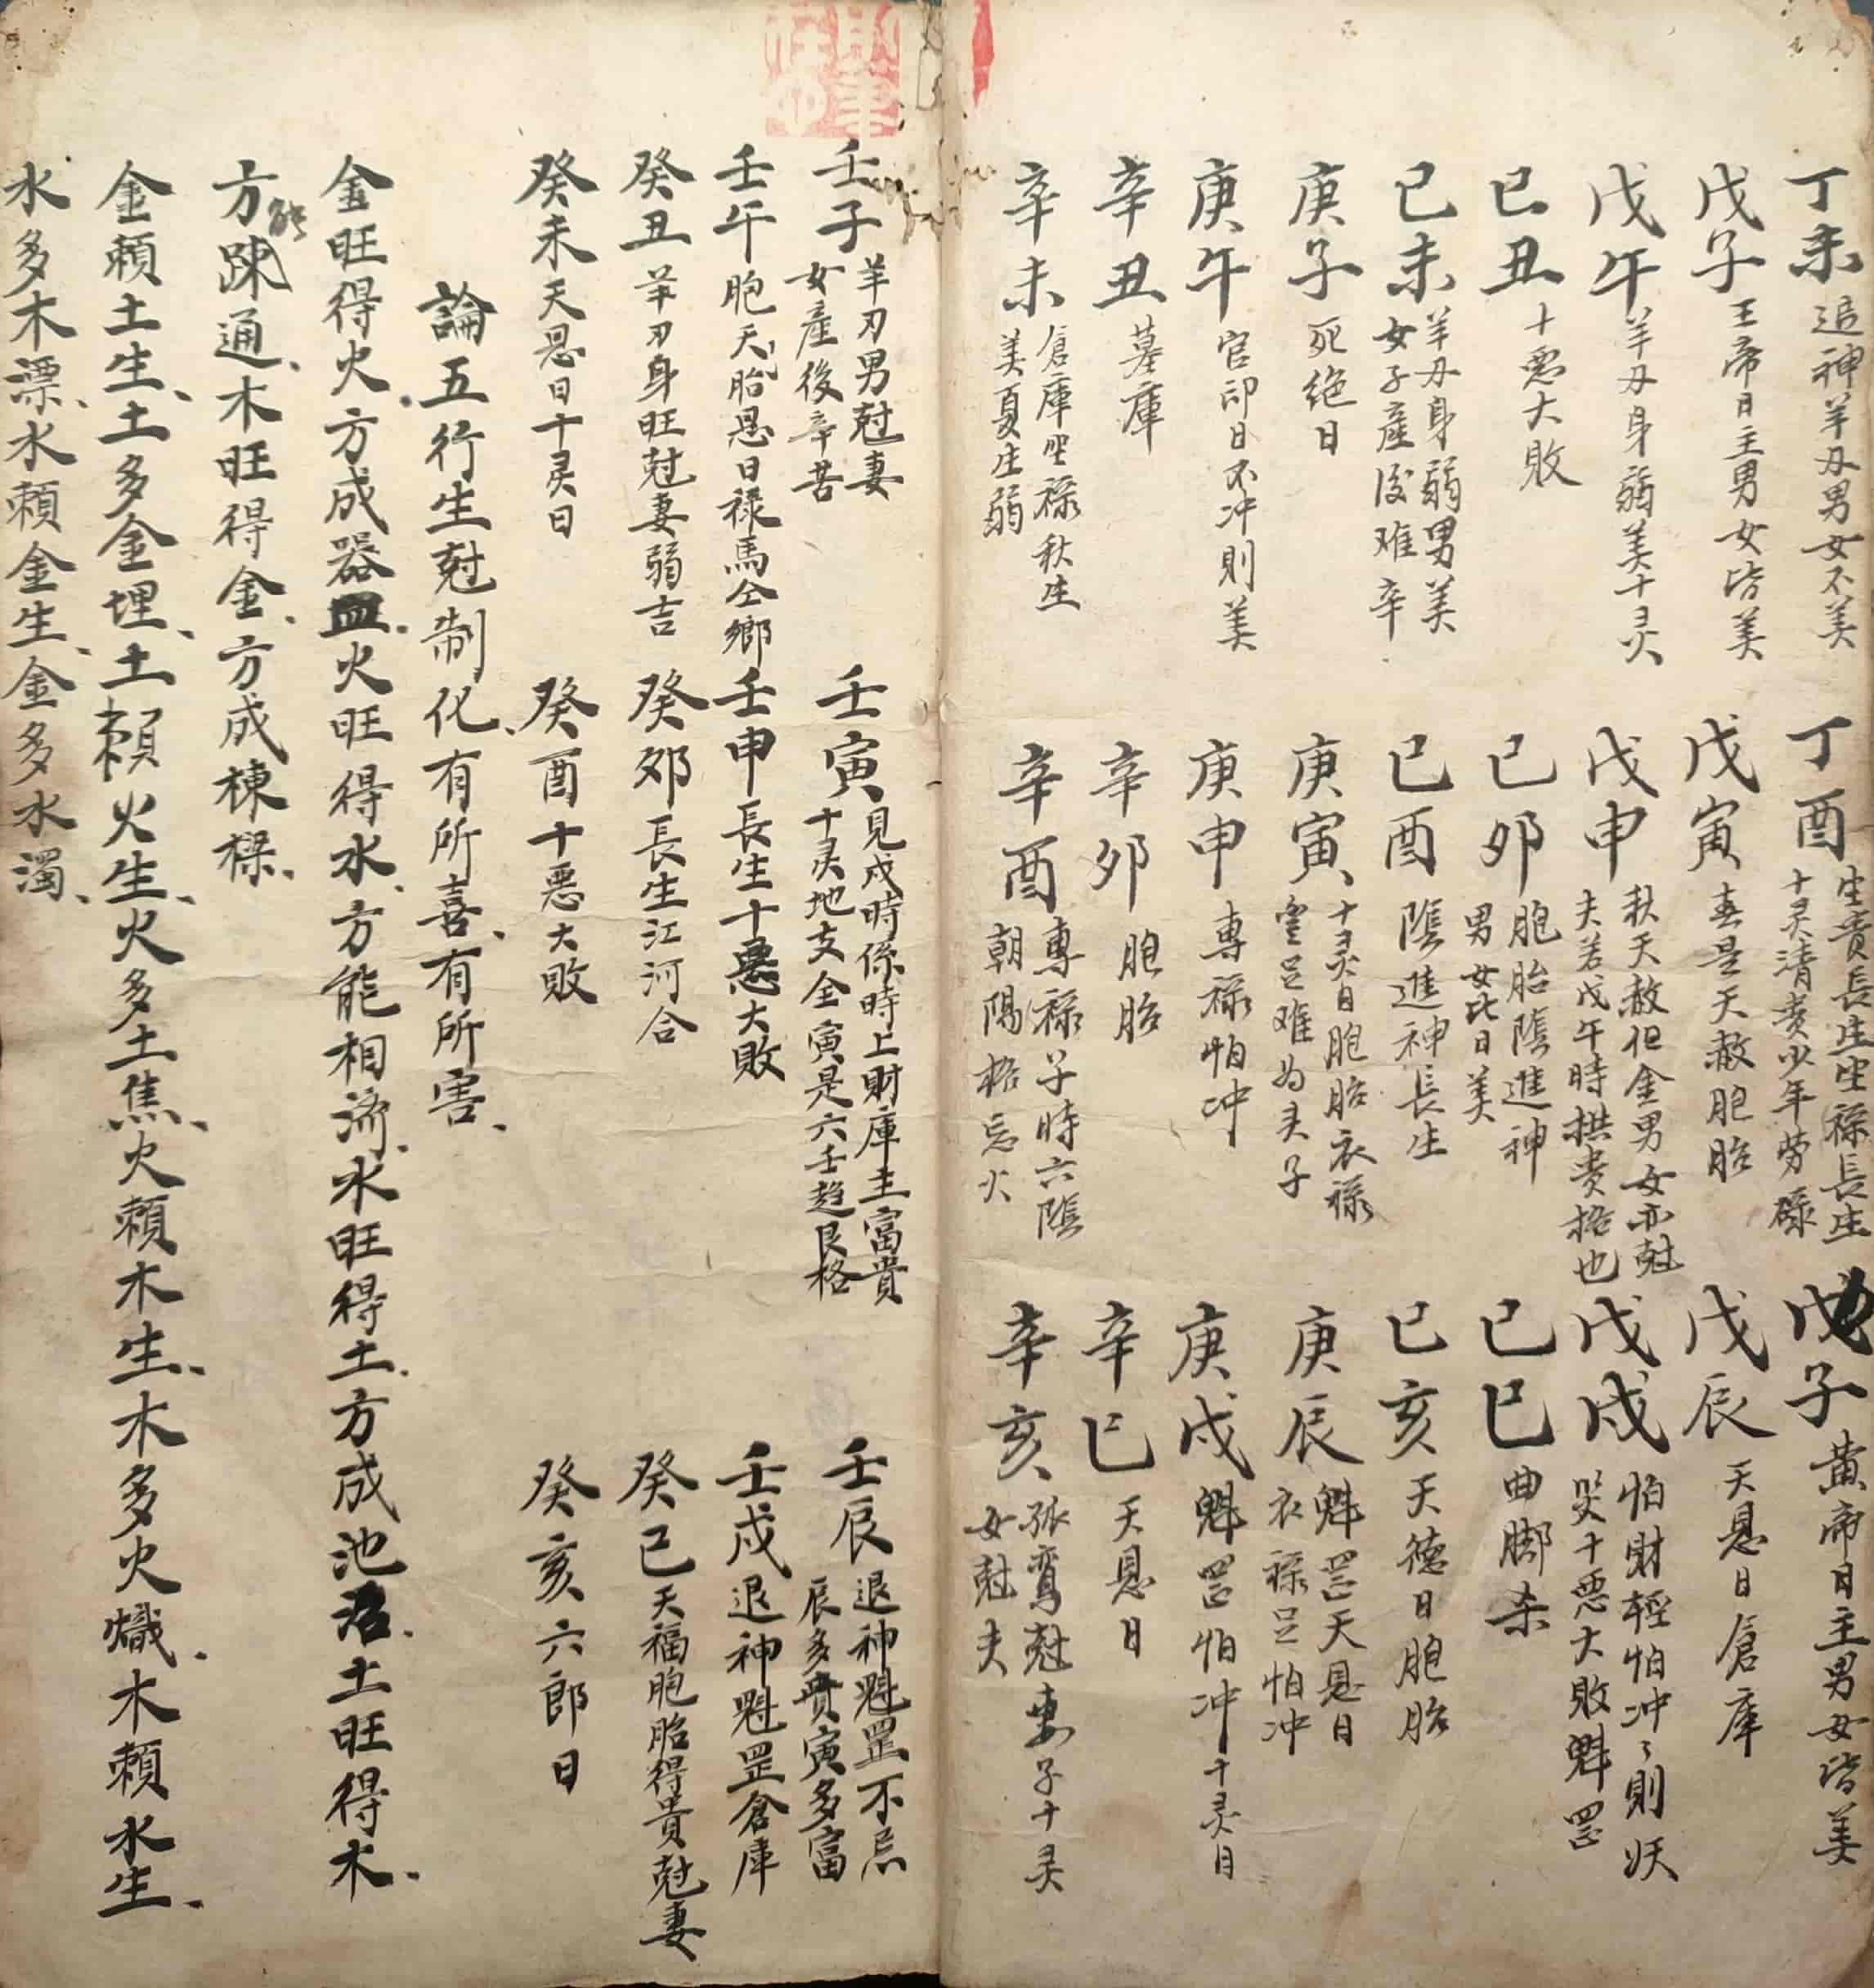 丁未 追神羊刃男女不美
丁酉 生貴長生坐祿長生
十灵清貴少年劳碌
戊子 黄帝日主男女皆美
戊子 王帝日主男女皆美
戊寅 春是天赦胞胎
戊辰 天恩日倉庫
戊午 羊刃身弱美十灵
戊申 秋天赦但金男女亦尅
夫若戊午時拱貴格也
戊戌 怕財輕怕冲〻則妖
哭十惡大敗魁罡
已丑 十惡大敗
已夘 胞胎陰進神
男女此日美
已巳 曲脚杀
已未 羊刃身弱男美
女子産後难辛
已酉 陰進神長生
已亥 天德日胞胎
庚子 死绝日
庚寅 十灵日胞胎衣祿
豐足难为夫子
庚辰 魁罡天恩日
衣祿足怕冲
庚午 官印日不冲則美
庚申 專祿怕冲
庚戌 魁罡怕冲十灵日
辛丑 墓庫
辛夘 胞胎
辛巳 天恩日
辛未 倉庫坐祿秋生
美夏生弱
辛酉 專祿子時六陰
朝陽格忌火
辛亥 孤鸾尅妻子十灵
女尅夫
壬子 羊刃男尅妻
女産後辛苦
壬寅 見戌時係時上財庫主富貴
十灵地支全寅是六壬趋艮格
壬辰 退神魁罡不忌
辰多貴寅多富
壬午 胞天胎恩日禄馬仝鄉
壬申 長生十惡大敗
壬戌 退神魁罡倉庫
癸丑 羊刃身旺尅妻弱吉
癸夘 長生江河合
癸巳 天福胞胎得貴尅妻
癸未 天恩日十灵日
癸酉 十惡大敗
癸亥 六郎日
論五行生尅制化、有所喜、有所害、
金旺得火、方成器皿、火旺得水、方能相济、水旺得土、方成池沼、土旺得木、
方能踈通、木旺得金、方成棟樑、
金賴土生、土多金埋、土賴火生、火多土焦、火賴木生、木多火熾、木賴水生、
水多木漂、水賴金生、金多水濁、